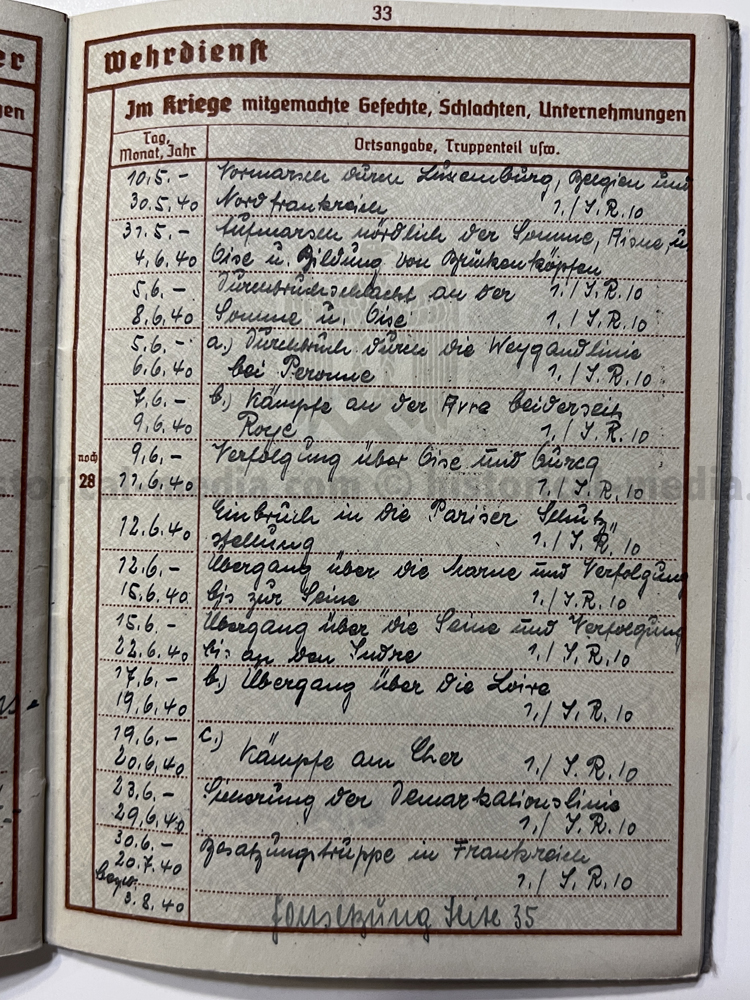 33
er
Wehrdienst
gen
Im Kriege mitgemachte Gefechte, Schlachten, Unternehmungen
Tag, Monat, Jahr
Ortsangabe, Truppenteil usw.
10.5.- Vormarsch durch Luxemburg, Belgien und
30.5.40 Nordfrankreich 1./I.R.10
31.5.- Aufmarsch nördlich der Somme, Aisne u.
4.6.40 Oise u. Bildung von Brückenköpfen
5.6.- Durchbruchschlacht an der 1./I.R.10
8.6.40 Somme u. Oise 1./I.R.10
5.6.- a.) Durchbruch durch die Weygandlinie
6.6.40 bei Peronne 1./I.R.10
7.6.- b.) Kämpfe an der Avre beiderseits
9.6.40 Roye 1./I.R.10
noch
28
9.6.- Verfolgung über Oise und Ourcq
11.6.40 1./I.R.10
historical-media.com © historical-media.
Einbruch in die Pariser Schutz
12.6.40 stellung 1./I.R.10
12.6.- Übergang über die Marne und Verfolgung
15.6.40 bis zur Seine 1./I.R.10
15.6.- Übergang über die Seine und Verfolgung
22.6.40 bis an den Indre 1./I.R.10
17.6.- b.) Übergang über die Loire
19.6.40 1./I.R.10
19.6.- c.) Kämpfe am Cher
20.6.40 1./I.R.10
23.6.- Sicherung der Demarkationslinie
29.6.40 1./I.R.10
30.6.- Besatzungstruppe in Frankreich
20.7.40 1./I.R.10
bezw.
3.8.40
Fortsetzung Seite 35